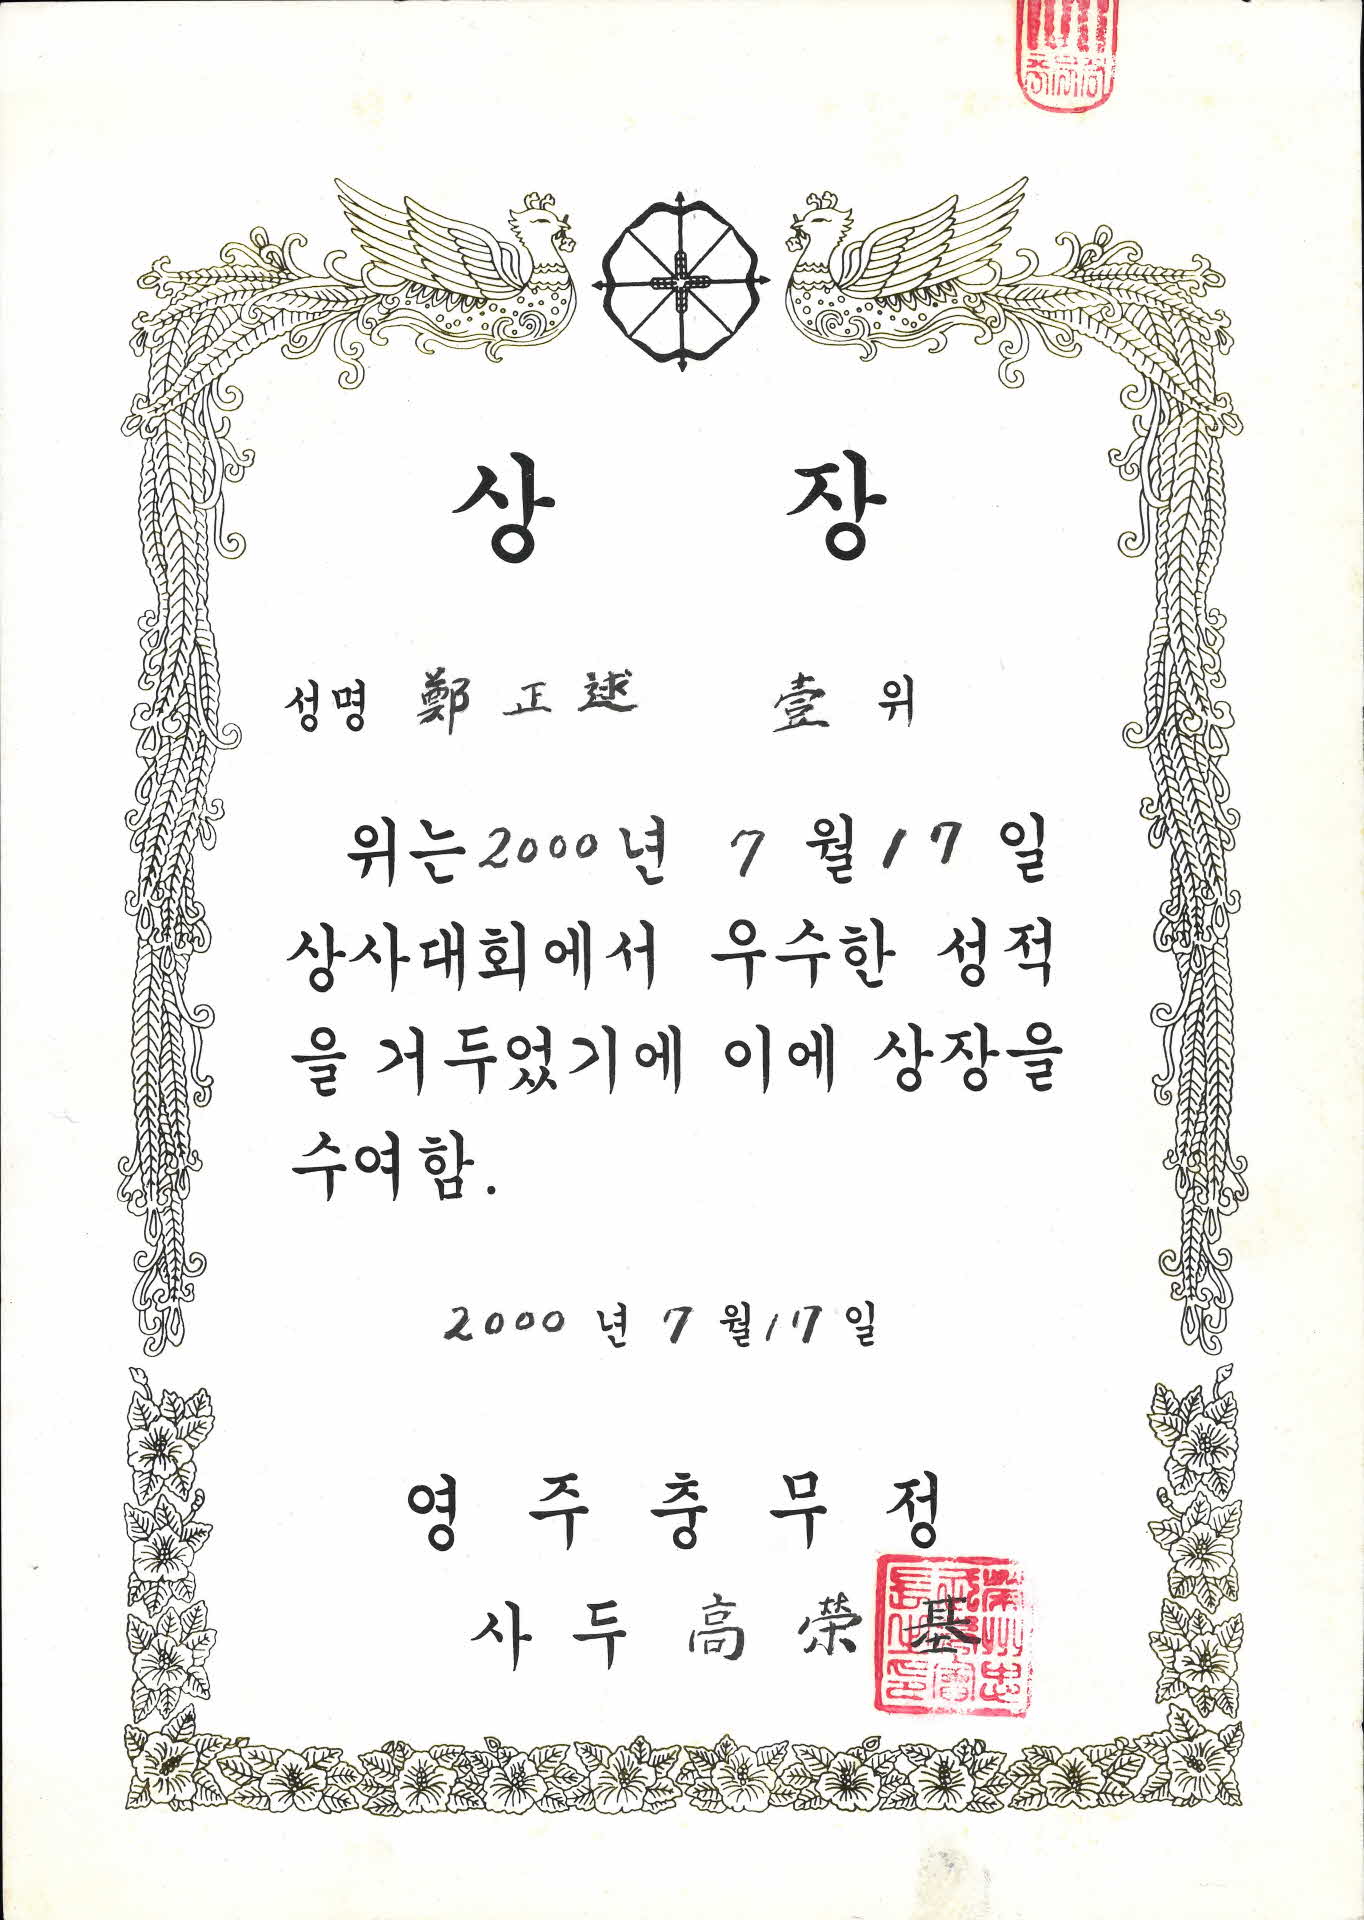 상 장
성명 鄭 正 逑 壹 위
위는 2000 년 7 월 17 일
상사대회에서 우수한 성적
을 거두었기에 이에 상장을
수여함.
2000 년 7 월 17 일
영 주 충 무 정
사 두 高 榮 基